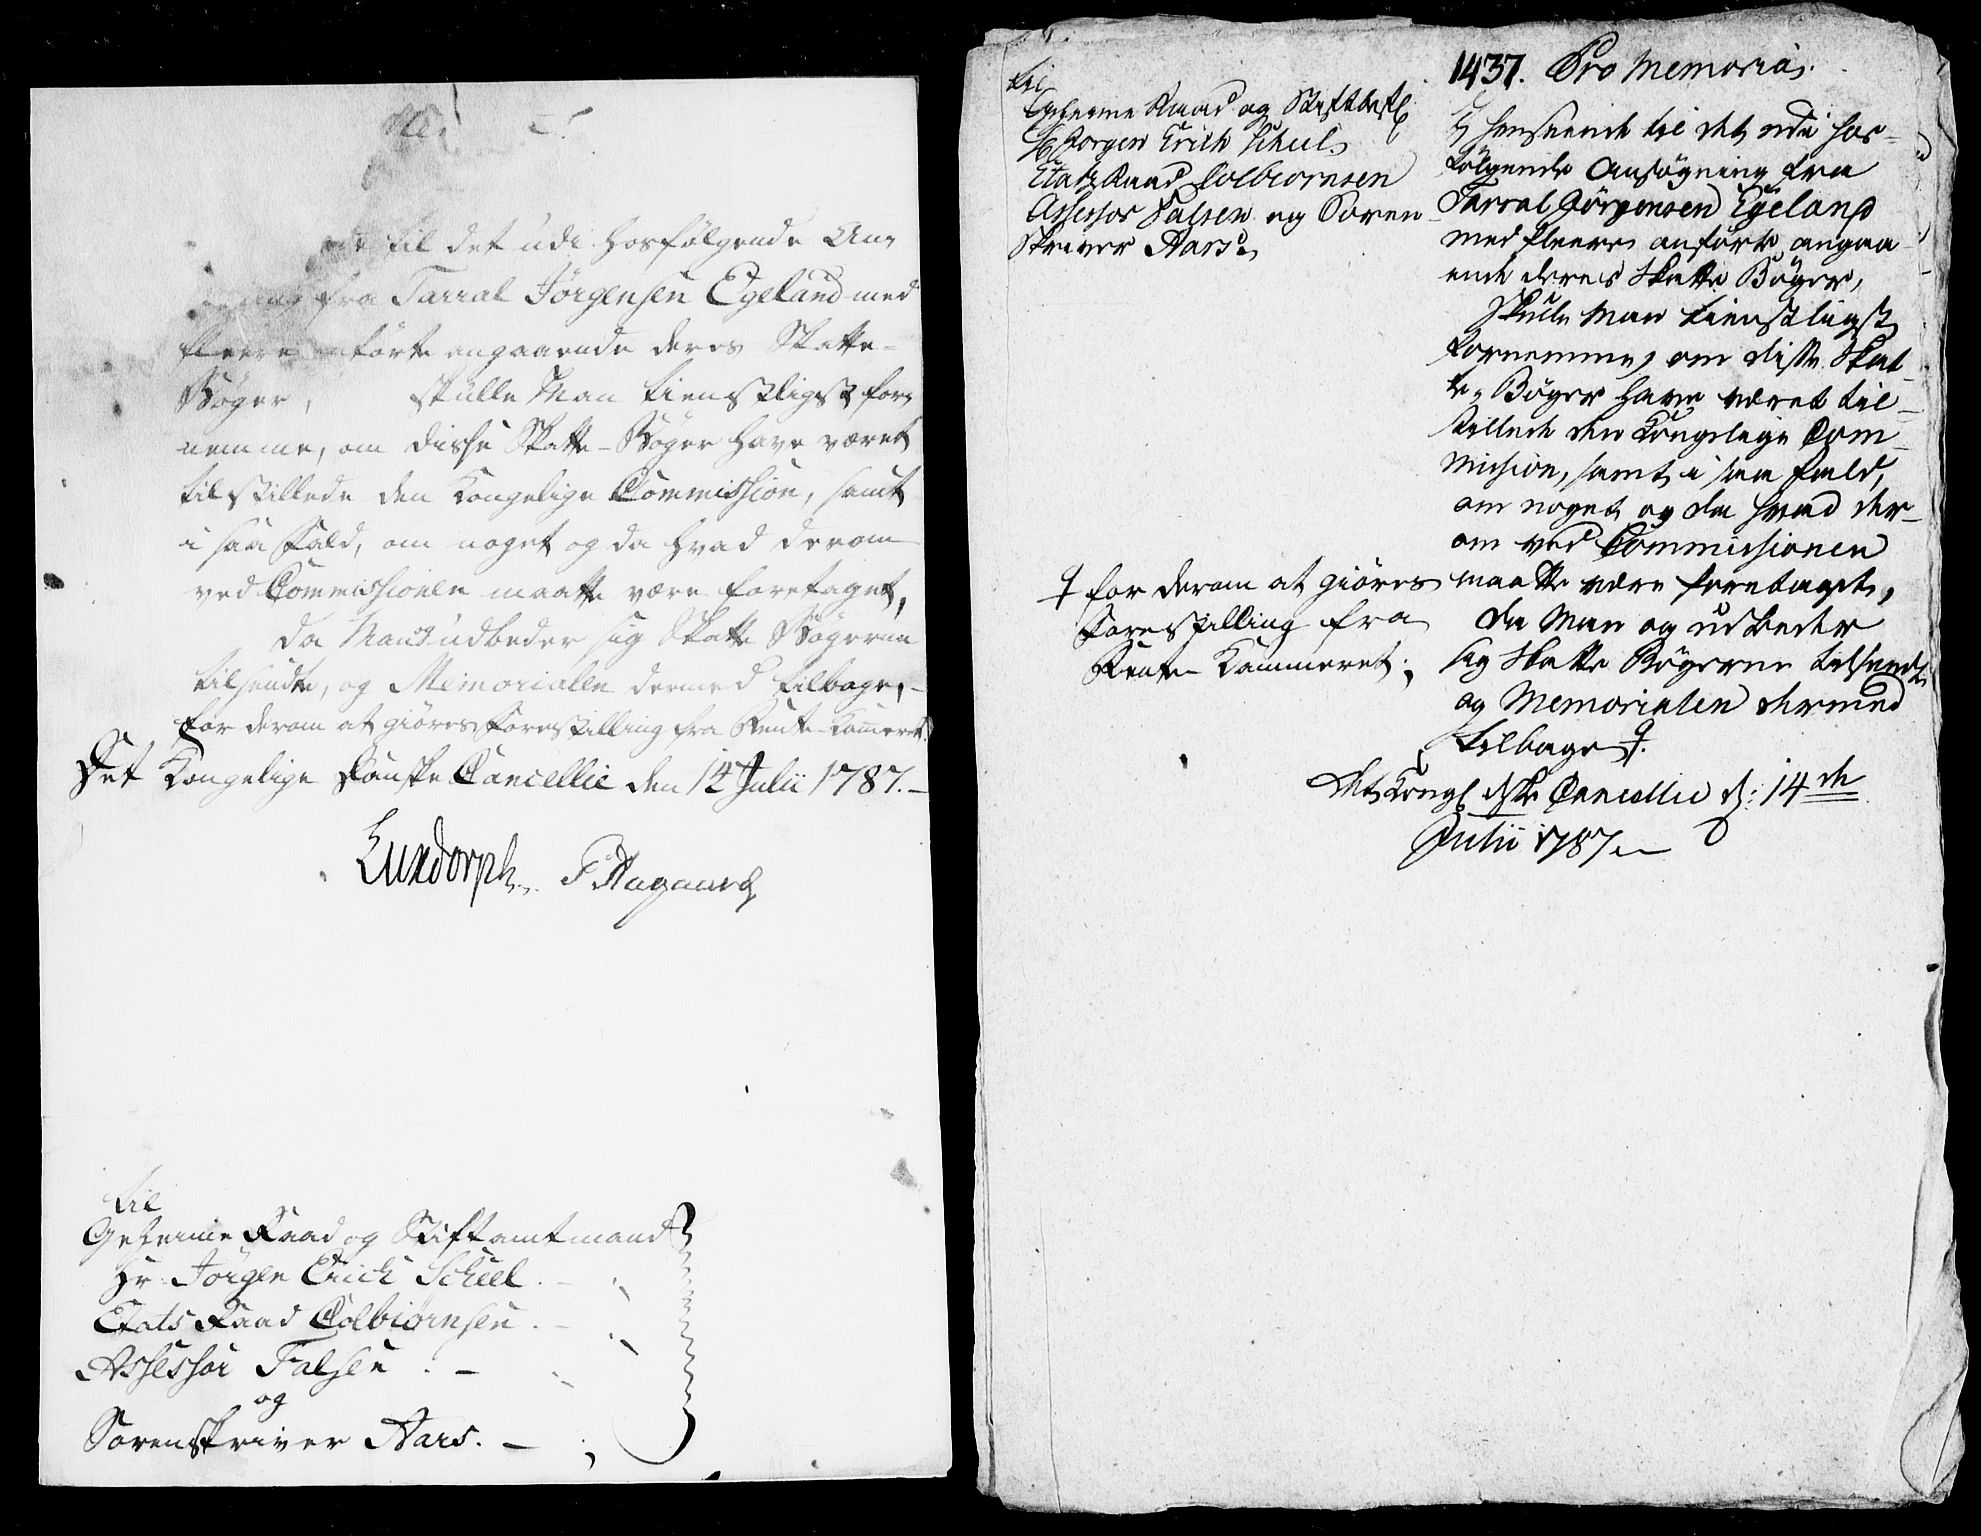 de til det udi hosfølgende An-
fra Tarral Jörgensen Egeland med
fleere anförte angaaende deres Skatte-
Bøger, skulle Man tienstligst for-
nemme, om disse Skatte-Bøger have været
tilstillede den Kongelige Commission, samt
i saa Fald, om noget og da hvad derom
ved Commissionen maatte være foretaget,
da Man udbeder sig Skatte Bøgerne
tilsendte, og Memorialen dermed tilbage,
for derom at giöres Forestilling fra Rente-Kammeret.
Det Kongelige Danske Cancellie den 14 Julii 1787.
Luxdorph. Aagaard
til
Geheime Raad og Stiftamtmand
Hr. Jörgen Erich Scheel.
Etats Raad Colbiørnsen.
Assessor Falsen.
og
Sorenskriver Aars.
1437. Pro Memoria.
til
Geheime Raad og Stiftbefl
H Jørgen Erich Scheel
Etats Raad Colbiornsen
Assessor Falsen og Soren
Skriver Aars
I henseende til det udi hos-
følgende Ansøgning fra
Tarral Jörgensen Egeland
med fleere anførte angaa-
ende deres Skatte Bøger,
Skulle Man tienstligst
fornemme, om disse Skat-
te-Bøger have været til-
stillede den Kongelige Com-
mission, samt i saa fald,
om noget og da hvad der-
om ved Commissionen
maatte være foretaget,
da Man og udbeder
sig Skatte Bøgerne tilsendte
og Memorialen dermed
tilbage
for derom at giöres
Forestilling fra
Rente-Kammeret.
Det Kongl dske Cancellie d: 14de
Julii 1787